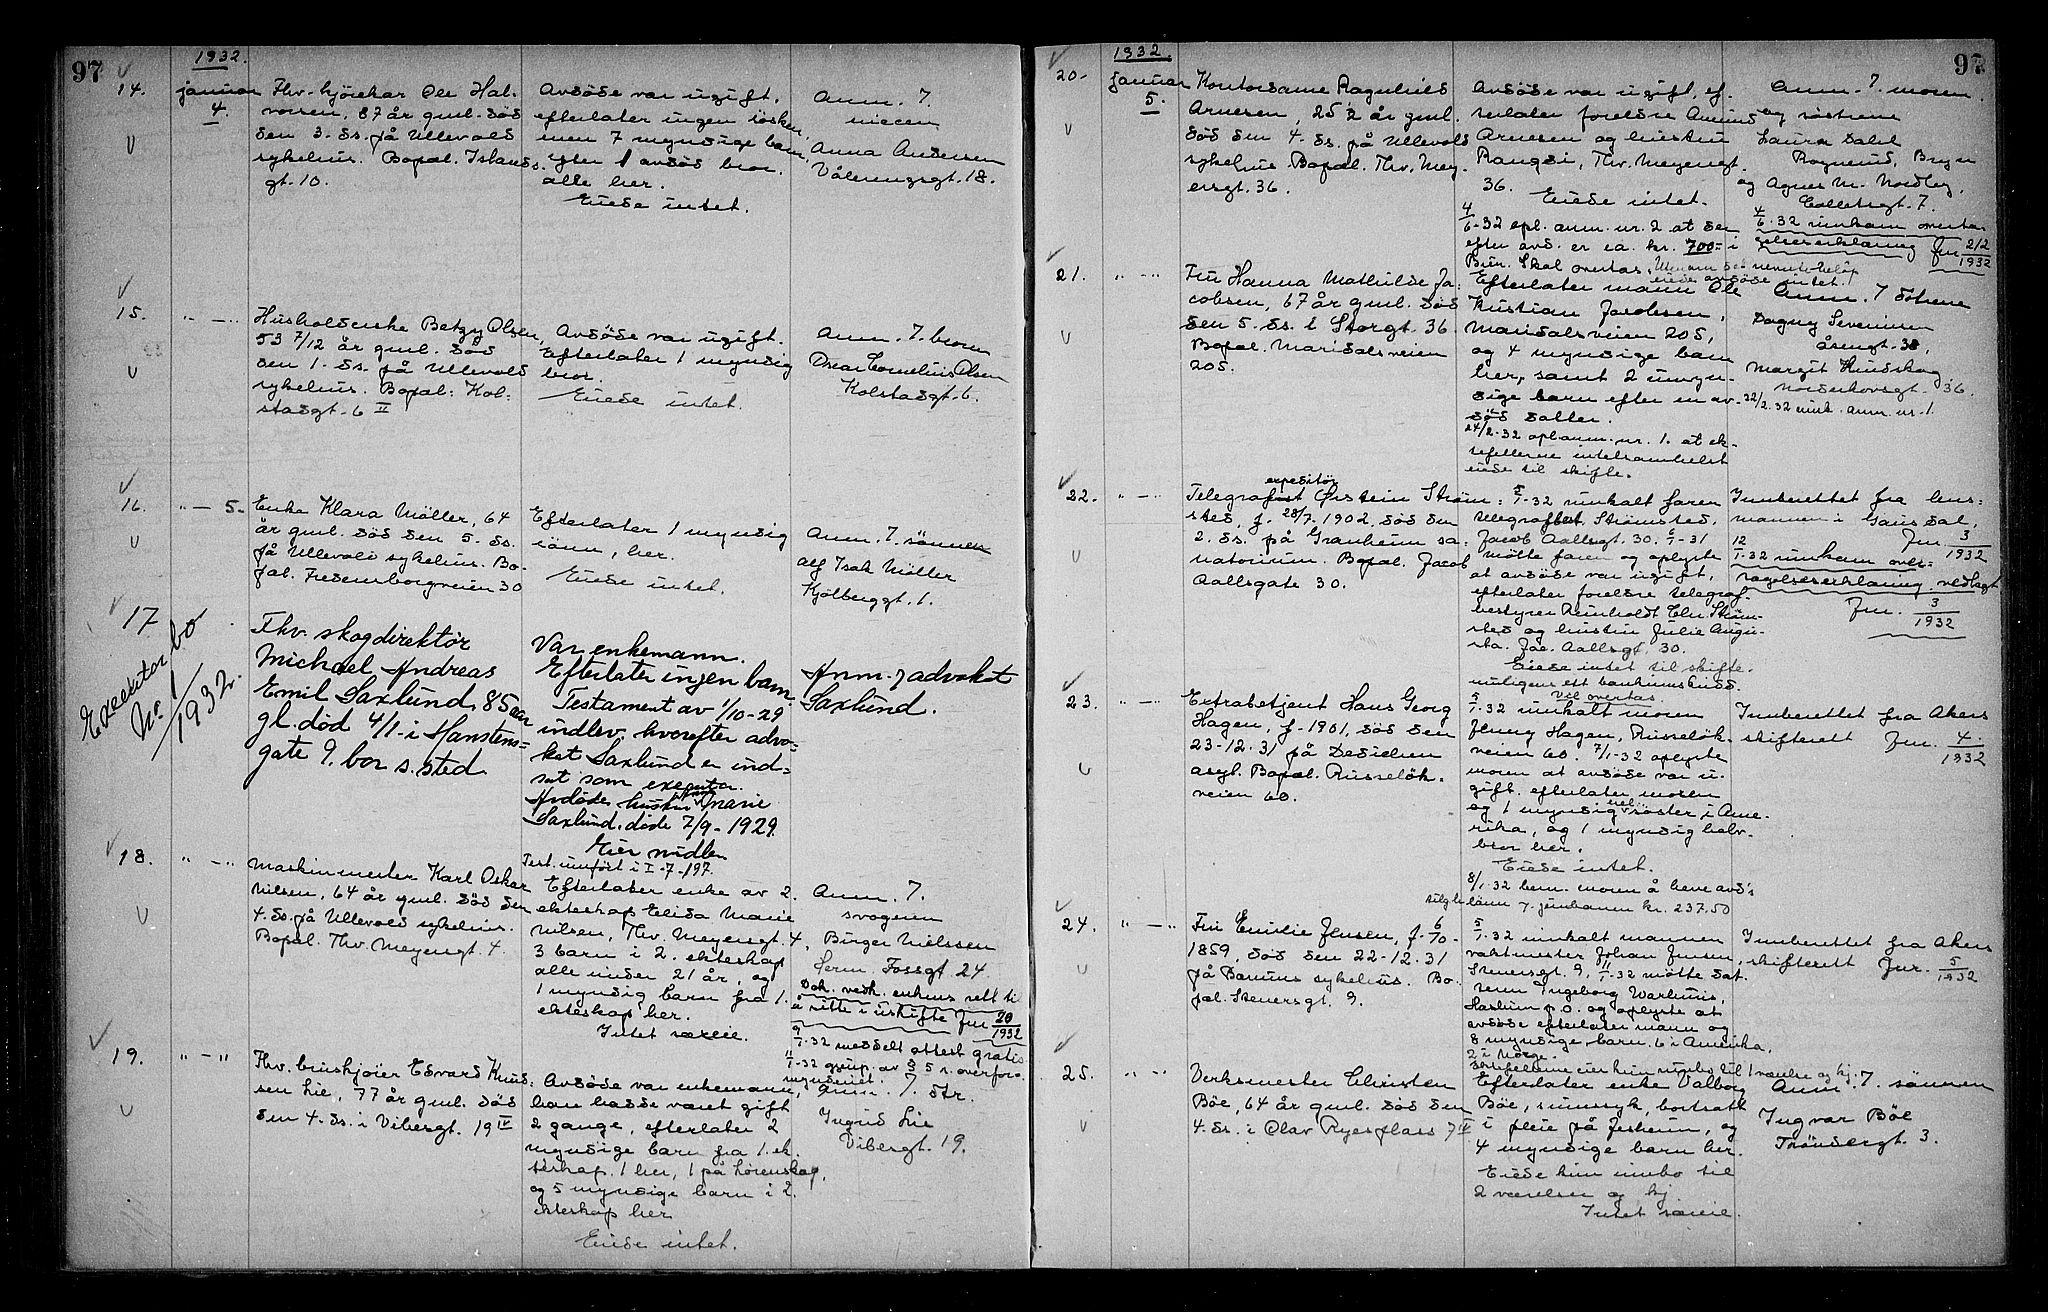 97
1932.
14.
januar
4.
Fhv. kjørekar Ole Hal-
vorsen, 87 år gml. død
den 3. ds. på Ullevold
sykehus. Bopæl. Islands
gt. 10.
Avdøde var ugift,
efterlater ingen søsken
men 7 myndige barn
efter 1 avdød bror.
alle her.
Eiede intet.
Anm. 7.
niecen
Anna Andersen
Vålerengsgt. 18.
15.
" — "
Husholderske Betzy Olsen,
53 7/12 år gml. død
den 1. ds. på Ullevold
sykehus. Bopæl: Kol-
stadgt. 6 II
Avdøde var ugift.
Efterlater 1 myndig
bror.
Eiede intet.
Anm. 7. broren
Oscar Cornelius Olsen
Kolstadgt. 6.
16.
" — 5.
Enke Klara Möller, 64
år gml. død den 5. ds.
på Ullevold sykehus. Bo-
pæl. Fredensborgveien 30
Efterlater 1 myndig
sønn, her.
Eiede intet.
Anm. 7. sønnen
Alf Isak Möller
Kjølberggt. 1.
17
Executorbo
No. 1/1932.
Fhv. skogdirektør
Michael Andreas
Emil Saxlund, 85 aar
gl. død 4/1 i Hanstens-
gate 9, bor s. sted
Var enkemann.
Efterlater ingen barn.
Testament av 1/10-29
indlev. hvorefter advo-
kat Saxlund er ind-
sat som executor.
Avdødes hustru Marie
Saxlund, døde 7/9 - 1929.
Eier midler
Test. innført i I-7-197.
Anm. 7 advokat
Saxlund.
18.
" — "
Maskinmester Karl Oskar
Nilsen, 64 år gml. død den
4. ds. på Ullevold sykehus.
Bopæl. Thv. Meyersgt. 4.
Efterlater enke av 2.
ekteskap Elida Marie
Nilsen, Thv. Meyersgt. 4,
3 barn i 2. ekteskap
alle under 21 år, og
1 myndig barn fra 1.
ekteskap her.
Intet særeie.
Anm. 7.
svogeren
Birger Nielssen
Herm. Fossgt 24.
Dok. vedk. enkens rett til
å sitte i uskifte Jnr 20/1932
9/1-32 meddelt attest gratis
19.
" — "
Fhv. bruskjøier Edvard Knud-
sen Lie, 77 år gml. død
den 4. ds. i Vibesgt. 19 IV
Avdøde var enkemann,
han hadde været gift
2 gange, efterlater 2
myndige barn fra 1. ek-
teskap. 1 her, 1 på Lørenskog,
og 5 myndige barn i 2.
ekteskap her
Eiede intet.
Anm. 7. dtr.
Ingrid Lie
Vibesgt. 19.
97
1932
20.
januar
5.
Kontordame Ragnhild
Arnesen, 25 1/2 år gml.
død den 4. ds. på Ullevold
sykehus. Bopæl. Thv. Mey-
ersgt. 36.
Avdøde var ugift, ef-
terlater foreldre Amund
Arnesen og hustru
Rangdi, Thv. Meyersgt.
36.
Eiede intet.
4/6-32 opl. anm. nr. 2 at der
efter avd. er ca. kr. 700= i
Bun. Skal overtas.
Anm. 7. moren
og søstrene
Laura Dahl
Rognerud, Bryn
og Agnes M. Nordby,
Colletsgt. 7.
4/6-32 innkom overta-
gelseserklæring Jnr 212/1932
21.
" — "
Fru Hanna Mathilde Ja-
cobsen, 67 år gml. død
den 5. ds. i Storgt. 36.
Bopæl. Maridalsveien
205.
Efterlater mann Ole
Kristian Jacobsen,
Maridalsveien 205,
og 4 myndige barn
her, samt 2 umyn-
dige barn efter en av-
død datter.
24/2-32 opl. anm. nr. 1. at ek-
tefellene intetsomhelst
eiede til skifte.
Anm. 7 døtrene
Dagny Severinsen
Åsengt. 38,
Margit Hundskog
Norderhovsgt. 36.
22/2.32 innk. anm. nr. 1.
22.
" — "
expeditør
Telegrafist Øistein Strøm-
sted, f. 28/7. 1902, død den
2. ds. på Granheim sa-
natorium. Bopæl. Jacob
Aallsgate 30.
5/1-32 innkalt faren
telegrafbest. Strømsted,
Jacob Aallsgt. 30. 7/1-31
møtte faren og oplyste
at avdøde var ugift,
efterlater foreldre telegraf-
bestyrer Reinholdt Chr. Strøm-
sted og hustru Julie Augu-
sta. Jac. Aallsgt. 30.
Eiede intet til skifte.
muligens ett bankinnskudd.
Vil overtas
Innberettet fra lens-
mannen i Gausdal,
Jnr. 3/1932
12/1-32 innkom over-
tagelseserklæring vedlagt
Jnr. 3/1932
23.
" — "
Extrabetjent Hans Georg
Hagen, f. 1901, død den
23-12.31 på Dedichen
asyl. Bopæl. Russeløk-
veien 60.
5/1-32 innkalt moren
Jenny Hagen, Russeløk-
veien 60. 7/1-32 oplyste
moren at avdøde var u-
gift, efterlater moren
og 1 myndig søster i Ame-
rika, og 1 myndig halv-
bror her.
Eiede intet.
8/1-32 bem. moren å heve avd's
tilgh. lønn 7. jernbanen kr. 237.50
Innberettet fra Akers
skifterett Jnr. 4./1932
24.
" — "
Fru Emilie Jensen, f. 6/10-
1859, død den 22-12.31
på Bærums sykehus. Bo-
pæl. Stenersgt. 9.
5/1-32 innkalt mannen
vaktmester Johan Jensen,
Stenersgt. 9, 11/1-32 møtte dat-
teren Ingeborg Warhuus,
Haslum p.o. og oplyste at
avdøde efterlater mann og
8 myndige barn. 6 i Amerika,
2 i Norge.
Ektefellene eier kun innbo til 1 værelse og kj.
Innberettet fra Akers
skifterett Jnr. 5/1932
25.
" — "
Verksmester Christen
Bøe, 64 år gml. død den
4. ds. i Olav Ryesplass 7 II
Efterlater enke Valborg
Bøe, sinnssyk, bortsatt
i pleie på Jessheim, og
4 myndige barn her.
Eiede kun innbo til
2 værelser og kj.
Intet særeie.
Anm. 7. sønnen
Ingvar Bøe
Trondersgt. 3.